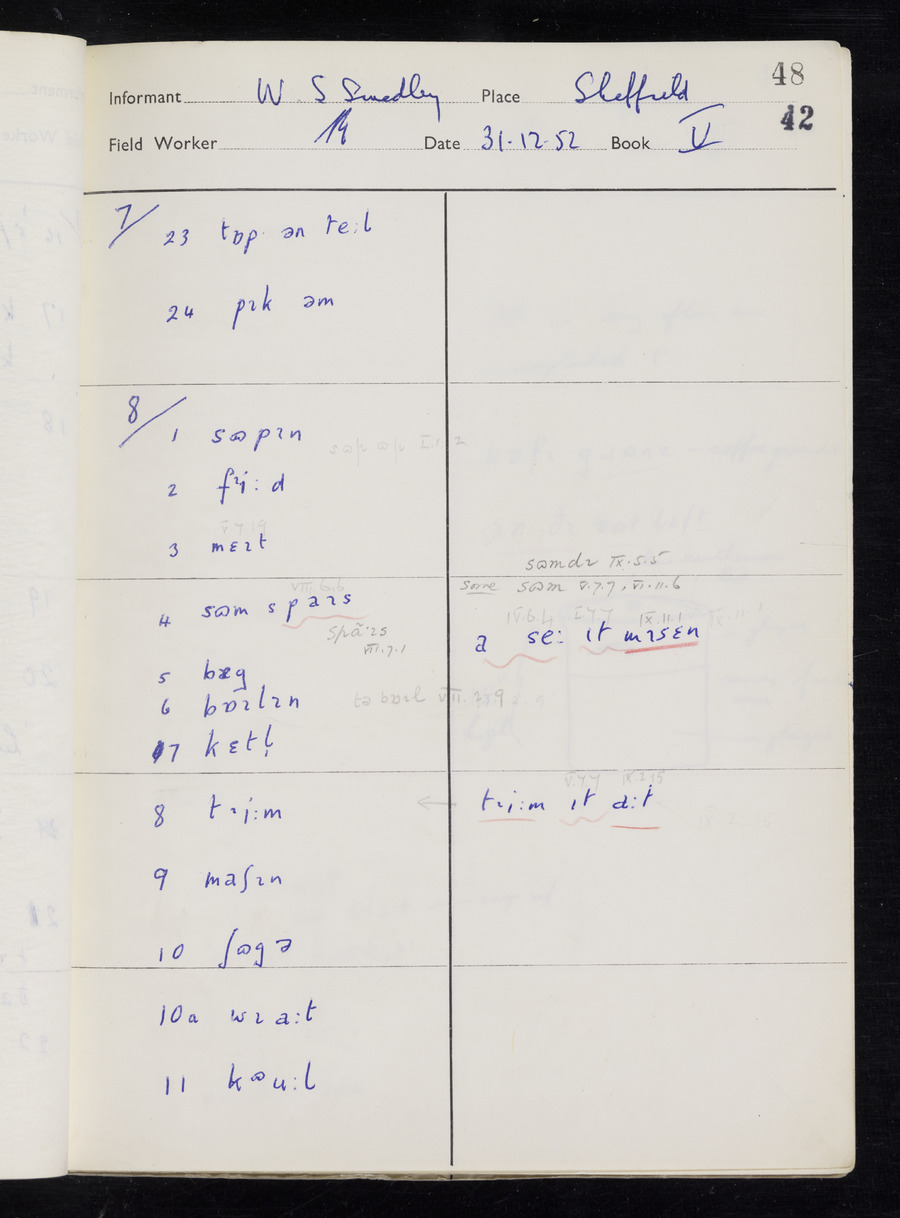 48
Informant W S Smedley Place Sheffield
42
Field Worker Date 31-12-52 Book V
7/ 23 tɒp ən teːl
24 pɪk əm
8/ 1 sʊpɪn
2 fɹiːd
V.7.19
3 mɛɪt
sʊmdɪ IX.5.5
some sʊm V.7.7, VI.11.6
VIII.6.6
4 sʊm spaɪs
spãːɪs
VII.7.1
IX.11.1
a seː ɪt mɪsɛn
5 bɛg
6 bɒɪlɪn
7 kɛtl̩
8 tɹiːm
← tɹiːm ɪt dːt
9 maʃɪn
10 ʃʊgə
10a wɹaːt
11 kʊuːl